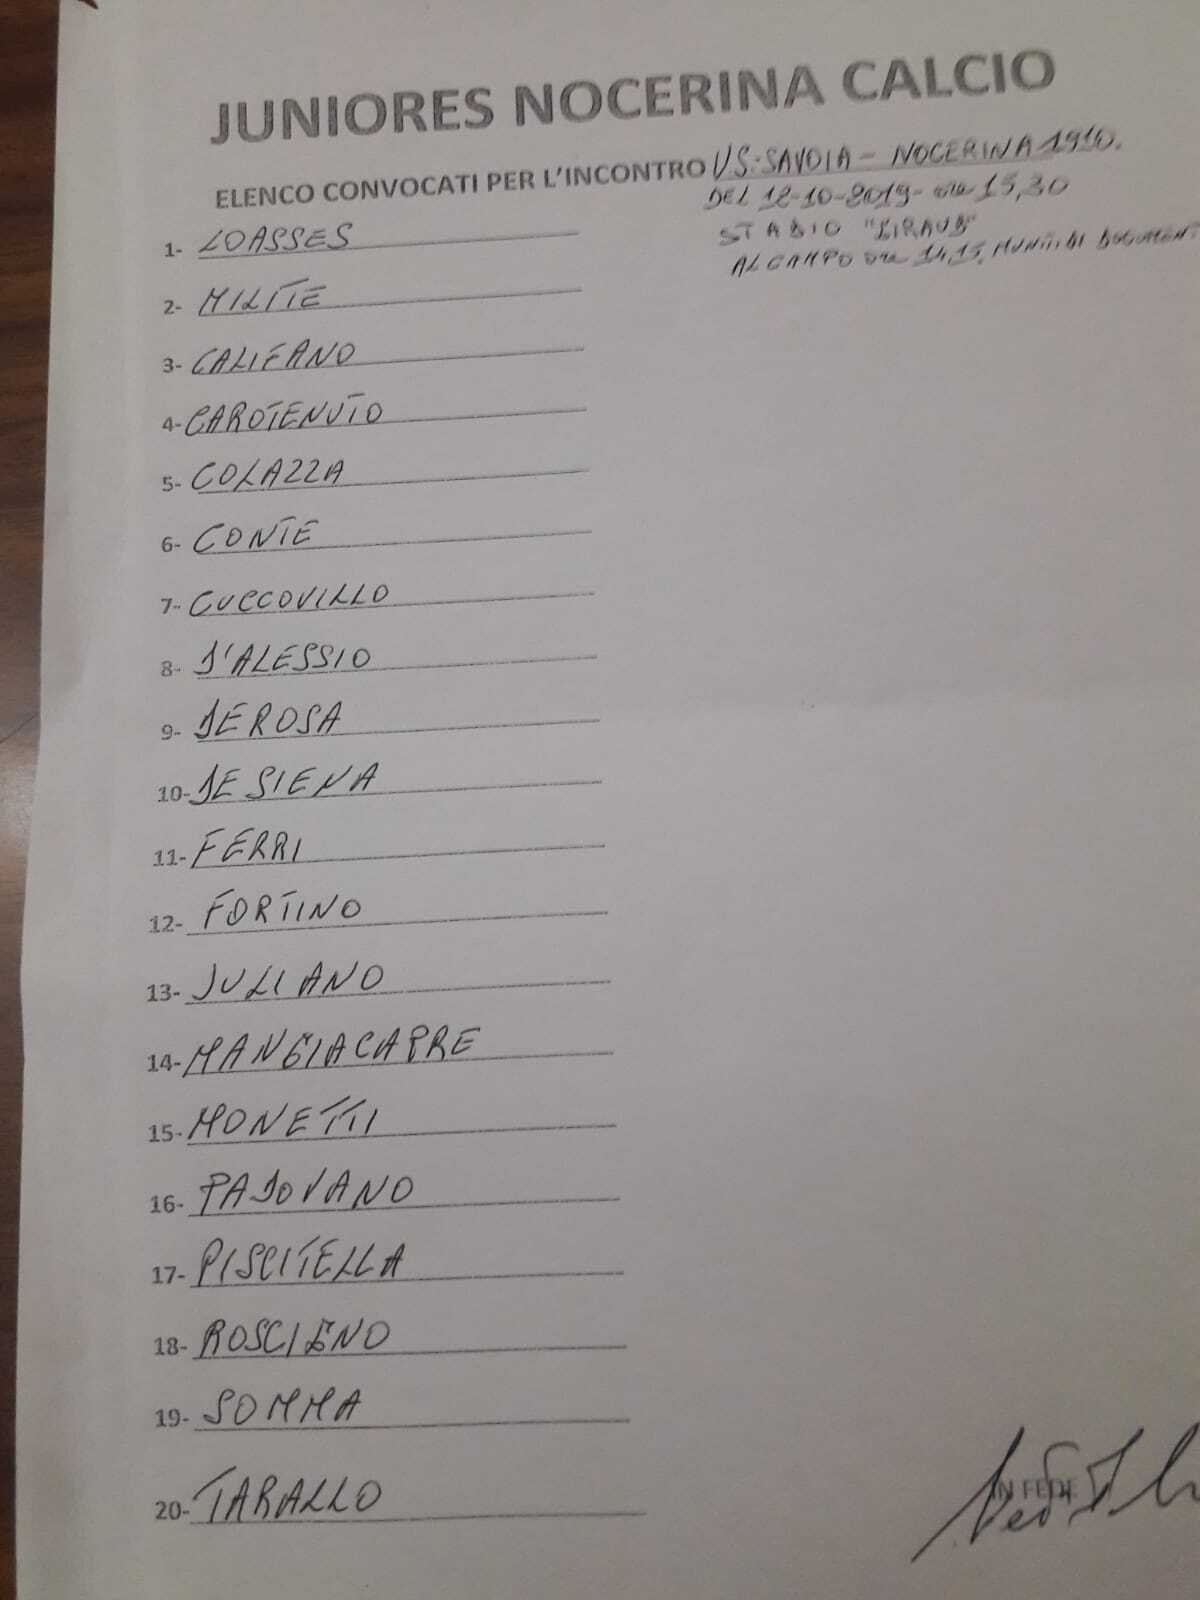 JUNIORES NOCERINA CALCIO
ELENCO CONVOCATI PER L'INCONTRO U.S. SAVOIA - NOCERINA 1910.
DEL 12-10-2019- ore 15,30
STADIO "GIRAUD"
AL CAMPO ore 14,15, MUNITI DI DOCUMENT
1- LOASSES
2- MILITE
3- CALIFANO
4- CAROTENUTO
5- COLAZZA
6- CONTE
7- CUCCOVILLO
8- D'ALESSIO
9- DEROSA
10- DE SIENA
11- FERRI
12- FORTINO
13- JULIANO
14- MANGIACAPRE
15- MONETTI
16- PADOVANO
17- PISCITELLA
18- ROSCIGNO
19- SOMMA
20- TARALLO
IN FEDE